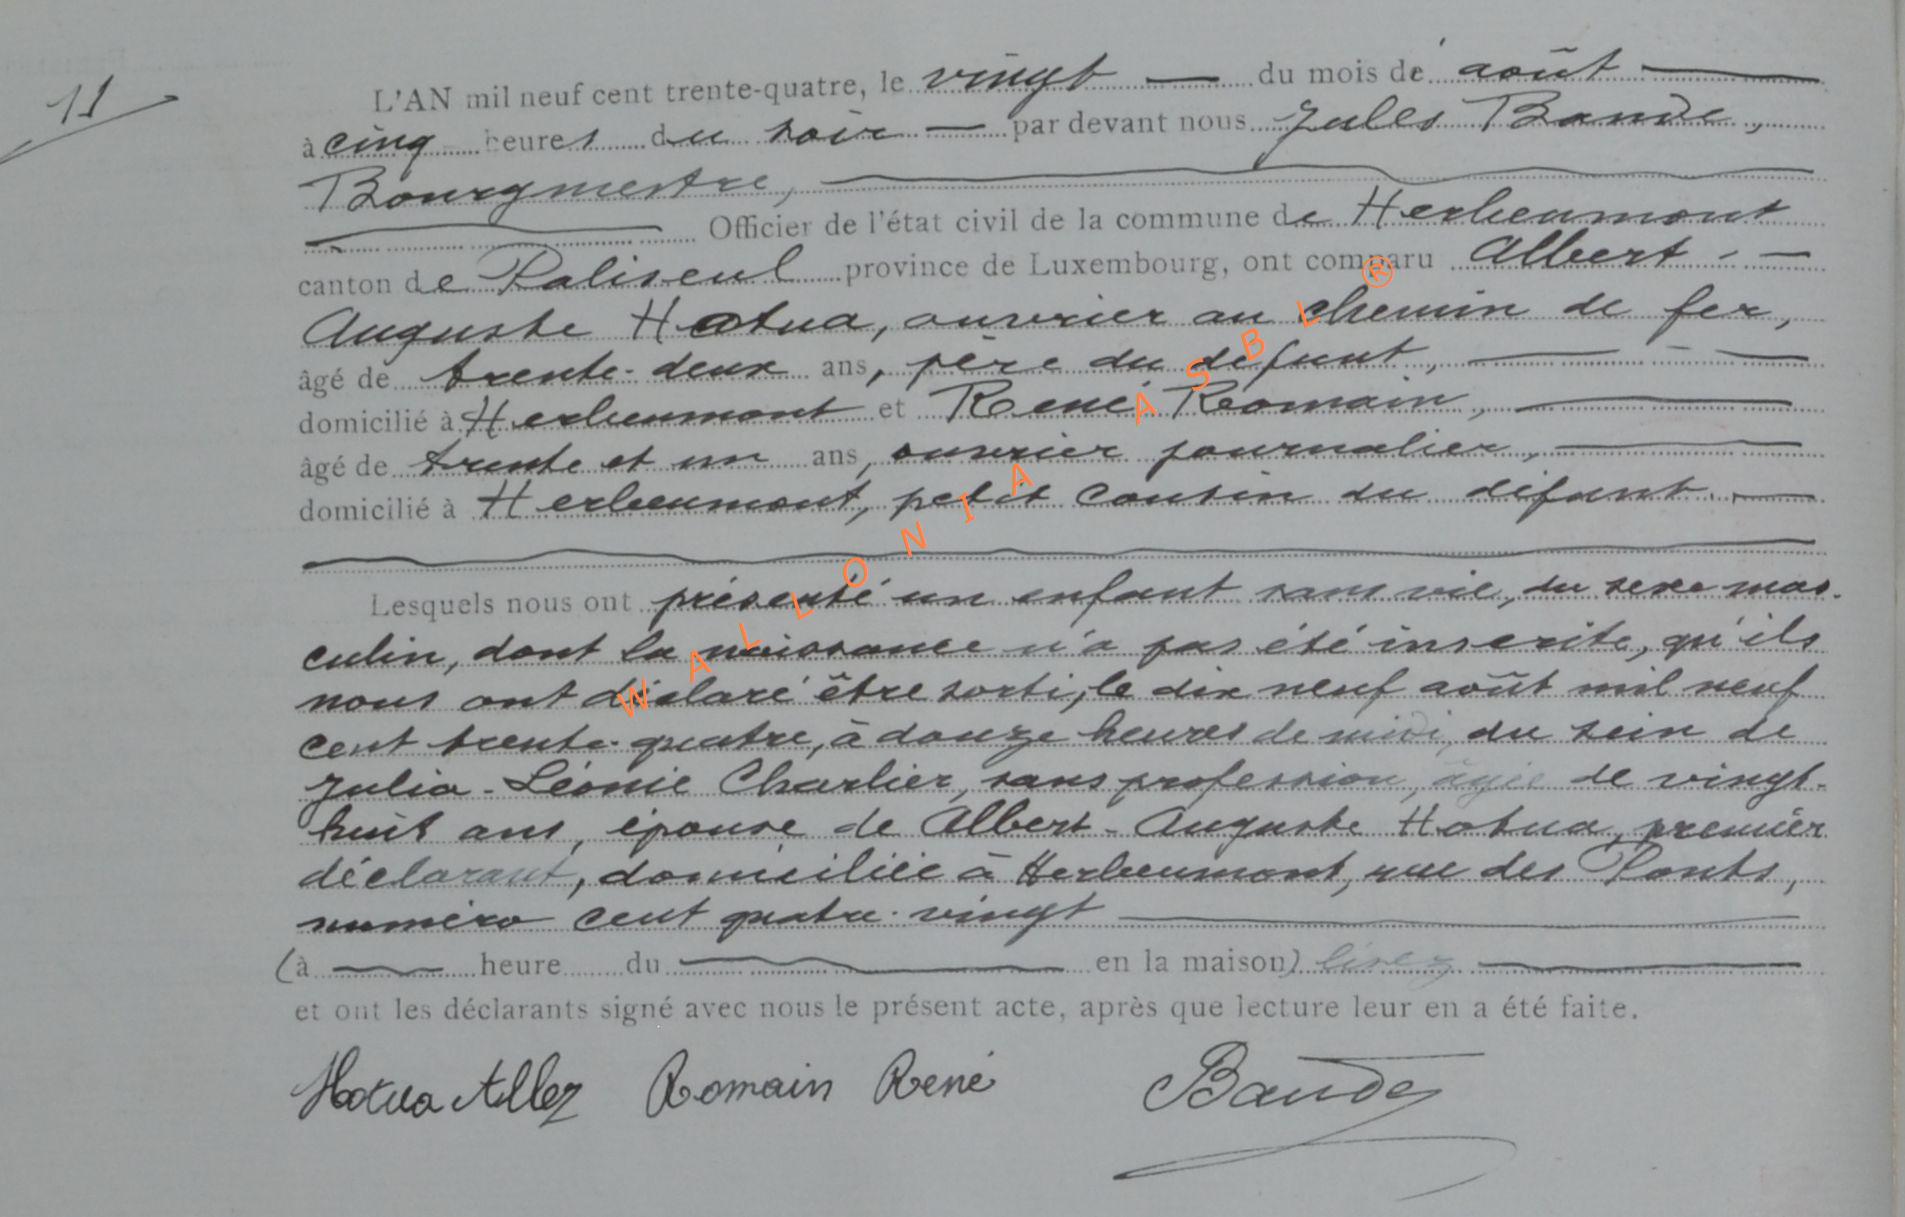 11
L'AN mil neuf cent trente-quatre, le vingt — du mois de août —
à cinq heures du soir — par devant nous Jules Bande,
Bourgmestre,
Officier de l'état civil de la commune de Herbeumont
canton de Paliseul province de Luxembourg, ont comparu Albert -
Auguste Hotua, ouvrier au chemin de fer,
âgé de trente-deux ans, père du défunt,
domicilié à Herbeumont et René Romain,
âgé de trente et un ans, ouvrier journalier,
domicilié à Herbeumont, petit cousin du défunt.
Lesquels nous ont présenté un enfant sans vie, du sexe mas-
culin, dont la naissance n'a pas été inscrite, qu'ils
nous ont déclaré être sorti, le dix neuf août mil neuf
cent trente-quatre, à douze heures de midi, du sein de
Julia-Léonie Charlier, sans profession, âgée de vingt-
huit ans, épouse de Albert-Auguste Hotua, premier
déclarant, domiciliée à Herbeumont, rue des Ponts,
numéro cent quatre-vingt
(à — heure du — en la maison) lirez
et ont les déclarants signé avec nous le présent acte, après que lecture leur en a été faite.
Hotua Romain René Bande
WALLONIA ASBL ®